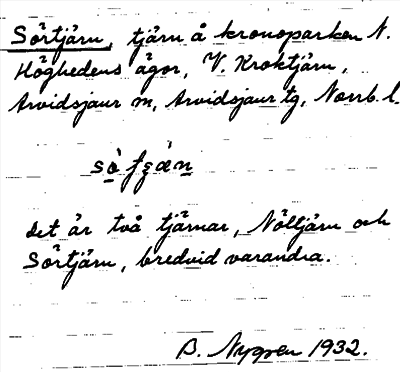 Sörtjärn, tjärn å kronoparken N.
Höghedens ägor, V. Kroktjärn,
Arvidsjaur sn, Arvidsjaur tg, Norrb. l.
det är två tjärnar, Nöltjärn och
Sörtjärn, bredvid varandra.
B. Nygren 1932.